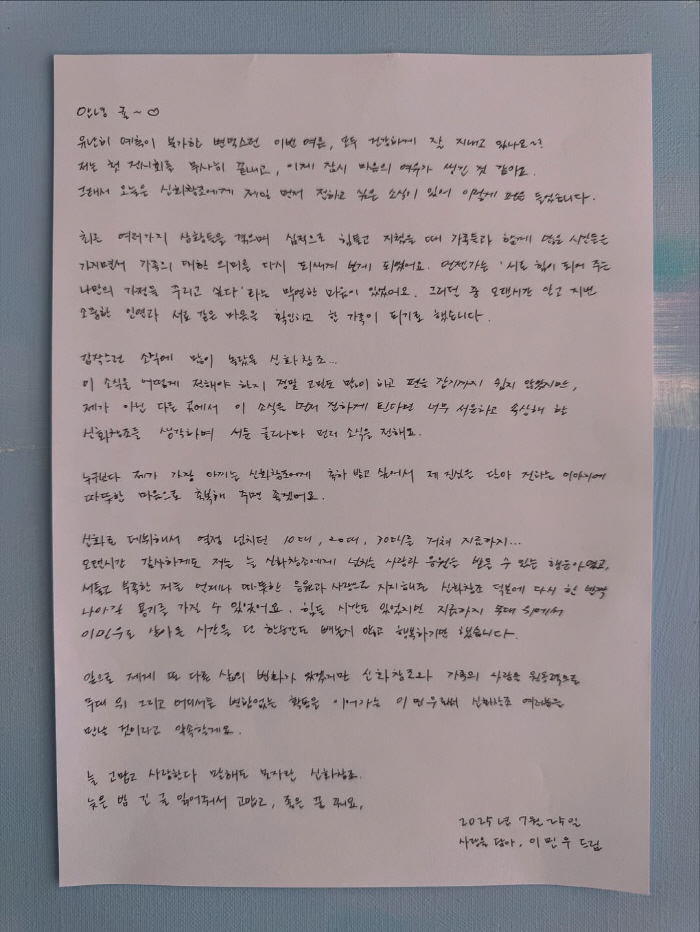 안녕 굴~♡
유난히 예측이 불가한 변덕스런 이번 여름, 모두 건강하게 잘 지내고 있나요~?
저는 첫 전시회를 무사히 끝내고, 이제 잠시 마음의 여유가 생긴 것 같아요.
그래서 오늘은 신화창조에게 제일 먼저 전하고 싶은 소식이 있어 이렇게 펜을 들었습니다.
최근 여러가지 상황들을 겪으며 심적으로 힘들고 지쳤을 때 가족들과 함께 많은 시간들은
가지면서 가족의 대한 의미를 다시 되새겨 보게 되었어요. 언젠가는 '서로 힘이 되어 주는
나만의 가정을 꾸리고 싶다'라는 막연한 마음이 있었어요. 그러던 중 오랜시간 알고 지낸
소중한 인연과 서로 같은 마음을 확인하고 한 가족이 되기로 했습니다.
갑작스런 소식에 많이 놀랐을 신화창조...
이 소식을 어떻게 전해야 하지 정말 고민도 많이 하고 펜을 잡기까지 쉽지 않았지만,
제가 아닌 다른 곳에서 이 소식을 먼저 전하게 된다면 너무 서운하고 속상해 할
신화창조를 생각하며 서툰 글로나마 먼저 소식을 전해요.
누구보다 제가 가장 아끼는 신화창조에게 축하 받고 싶어서 제 진심은 담아 전하는 이야기에
따뜻한 마음으로 축복해 주면 좋겠어요.
신화로 데뷔해서 열정 넘치던 10대, 20대, 30대를 거쳐 지금까지...
오랜시간 감사하게도 저는 늘 신화창조에게 넘치는 사랑과 응원은 받을 수 있는 행운아였고,
서툴고 부족한 저를 언제나 따뜻한 응원과 사랑으로 지지해준 신화창조 덕분에 다시 한 번 더
나아갈 용기를 가질 수 있었어요. 힘든 시간도 있었지만 지금까지 무대 위에서
이민우로 살아온 시간을 단 한순간도 빼놓지 않고 행복하기만 했습니다.
앞으로 제게 또 다른 삶의 변화가 있겠지만 신화창조와 가족의 사랑은 원동력으로
무대 위 그리고 어디서든 변함없는 활동을 이어가는 이민우로써 신화창조 여러분을
만날 것이라고 약속할게요.
늘 고맙고 사랑한다 말해도 모자란 신화창조.
늦은 밤 긴 글 읽어줘서 고맙고, 좋은 꿈 꿔요,
2025년 7월 25일
사랑을 담아, 이민우 드림